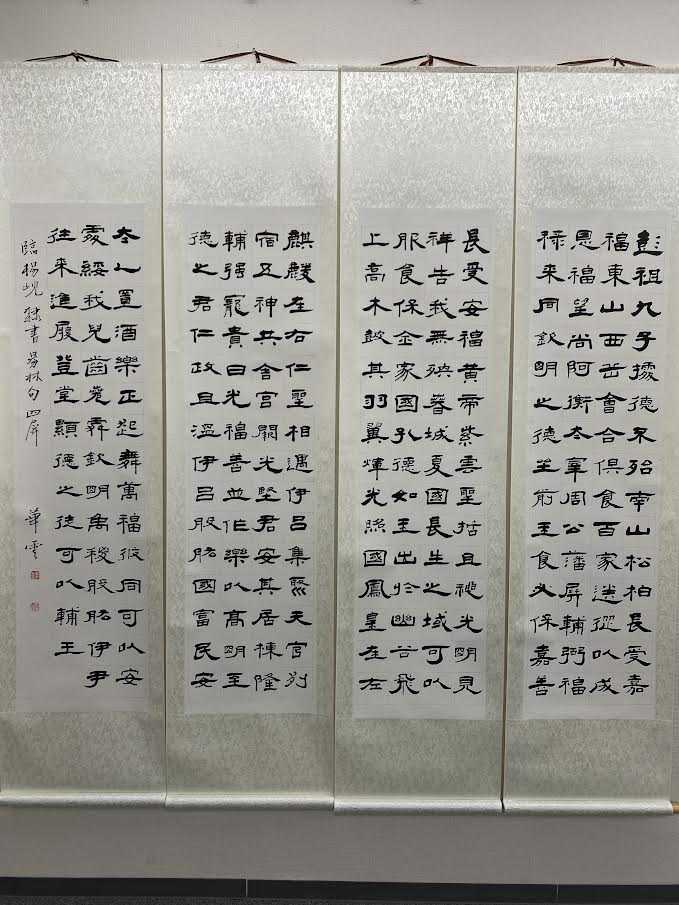 彭祖九子據德不殆南山松柏長受嘉
福東山西岳會合俱食百家送從以成
恩福望尚阿衡太宰周公藩屏輔弼福
祿來同欽明之德坐前玉食必保嘉善
長受安福黃帝紫雲聖且神光明見
祥告我無殃眷城夏國長生之域可以
服食保金家國孔德如玉出於幽谷飛
上高木鼓其羽翼煇光照國鳳皇在左
麒麟在右仁聖相遇伊呂集聚天官列
宿五神共舍宮闕光堅君安其居棟隆
輔强寵貴日光福善並作樂以高明至
德之君仁政且溫伊呂股肱國富民安
大人置酒樂正起舞萬福攸同可以安
處綏我兒齒堯舜欽明禹稷股肱伊尹
往來進履登堂顯德之徒可以輔王
臨楊峴隸書易林句四屏
華雲